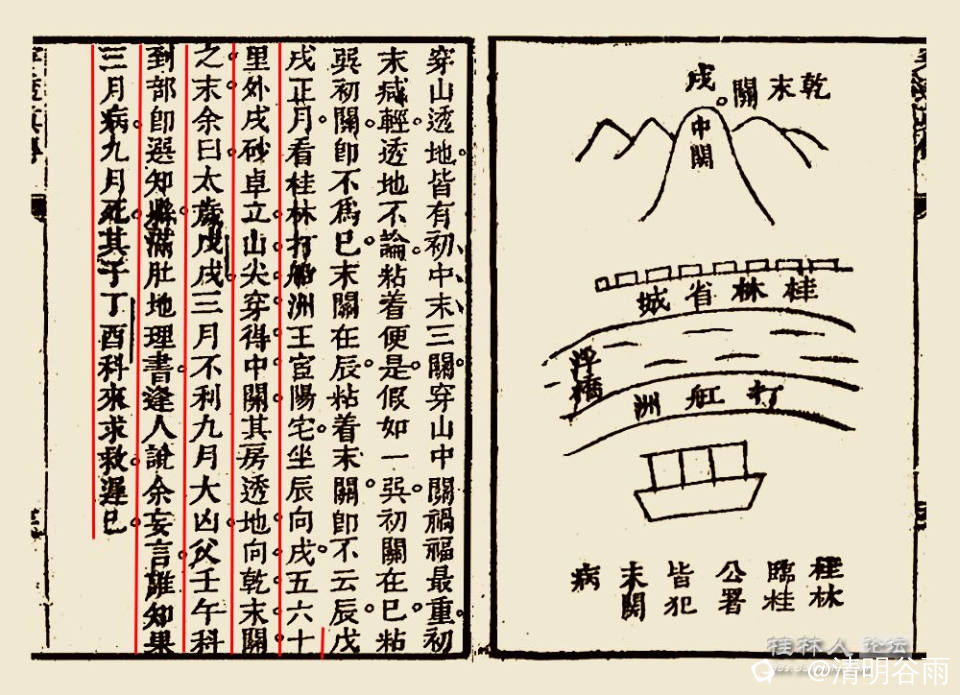 乾末關
戌
中關
桂林省城
浮橋
打舡洲
桂林
臨桂
公署
皆犯
末關
病
穿山透地皆有初中末三關穿山中關禍福最重初
末減輕透地不論粘着便是假如一巽初關在巳粘
巽初關即不爲巳末關在辰粘着末關即不云辰戊
戌正月看桂林打船洲王宧陽宅坐辰向戌五六十
里外戌砂卓立山尖穿得中關其房透地向乾末關
之末余曰太歲戊戌三月不利九月大凶父壬午科
到部即選知縣滿肚地理書逢人說余妄言誰知果
三月病九月死其子丁酉科來求救遲已
桂林人论坛
@清明谷雨